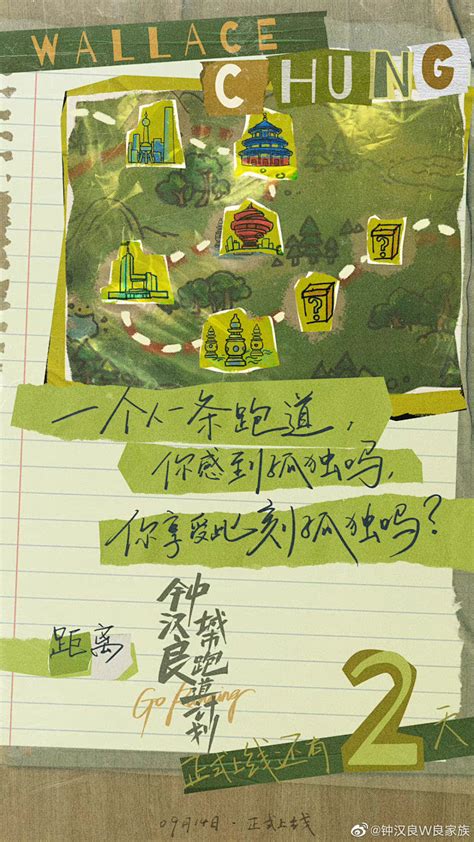 WALLACE
CHUNG
?
?
一个人一条跑道,
你感到孤独吗,
你享受此刻孤独吗?
距离
钟汉良
城市跑道计划
Go Running
正式上线还有2天
09月14日·正式上线
@钟汉良W良家族